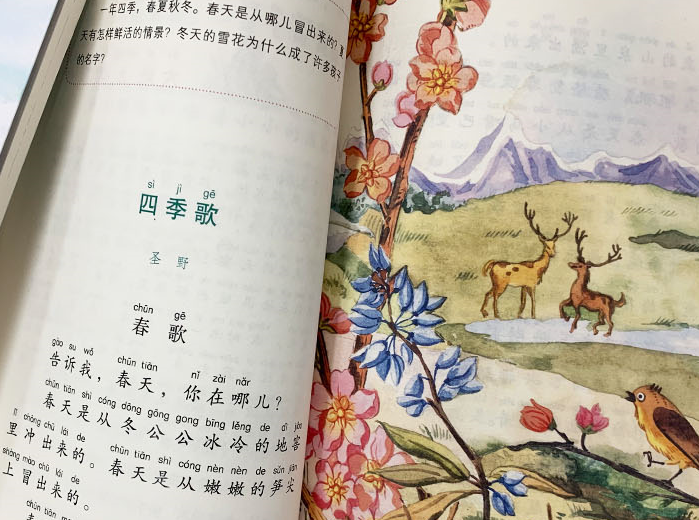 一年四季，春夏秋冬。春天是从哪儿冒出来的？夏
天有怎样鲜活的情景？冬天的雪花为什么成了许多孩子
的名字？
sì jì gē
四季歌
圣 野
chūn gē
春 歌
gào su wǒ chūn tiān nǐ zài nǎr
告诉我，春天，你在哪儿？
chūn tiān shì cóng dōng gōng gong bīng lěng de dì jiào
春天是从冬公公冰冷的地窖
lǐ chōng chū lái de chūn tiān shì cóng nèn nèn de sǔn jiān
里冲出来的。春天是从嫩嫩的笋尖
shàng mào chū lái de
上冒出来的。
chūn tiān